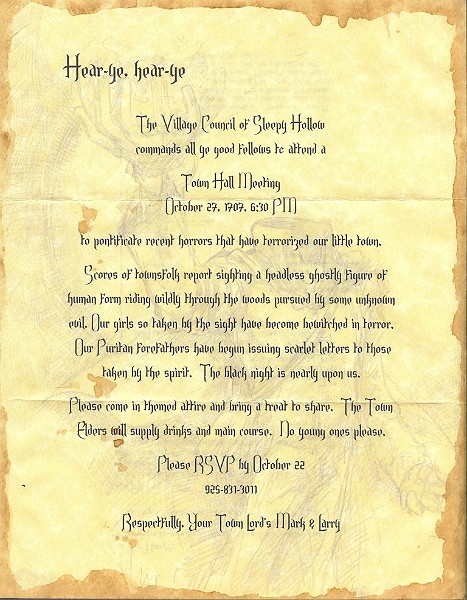 Hear-ye, hear-ye
The Village Council of Sleepy Hollow
commands all ye good fellows to attend a
Town Hall Meeting
October 27, 1707, 6:30 PM
to pontificate recent horrors that have terrorized our little town.
Scores of townsfolk report sighting a headless ghostly figure of
human form riding wildly through the woods pursued by some unknown
evil. Our girls so taken by the sight have become bewitched in terror.
Our Puritan forefathers have begun issuing scarlet letters to those
taken by the spirit. The black night is nearly upon us.
Please come in themed attire and bring a treat to share. The Town
Elders will supply drinks and main course. No young ones please.
Please RSVP by October 22
925-831-3011
Respectfully, Your Town Lord's Mark & Larry